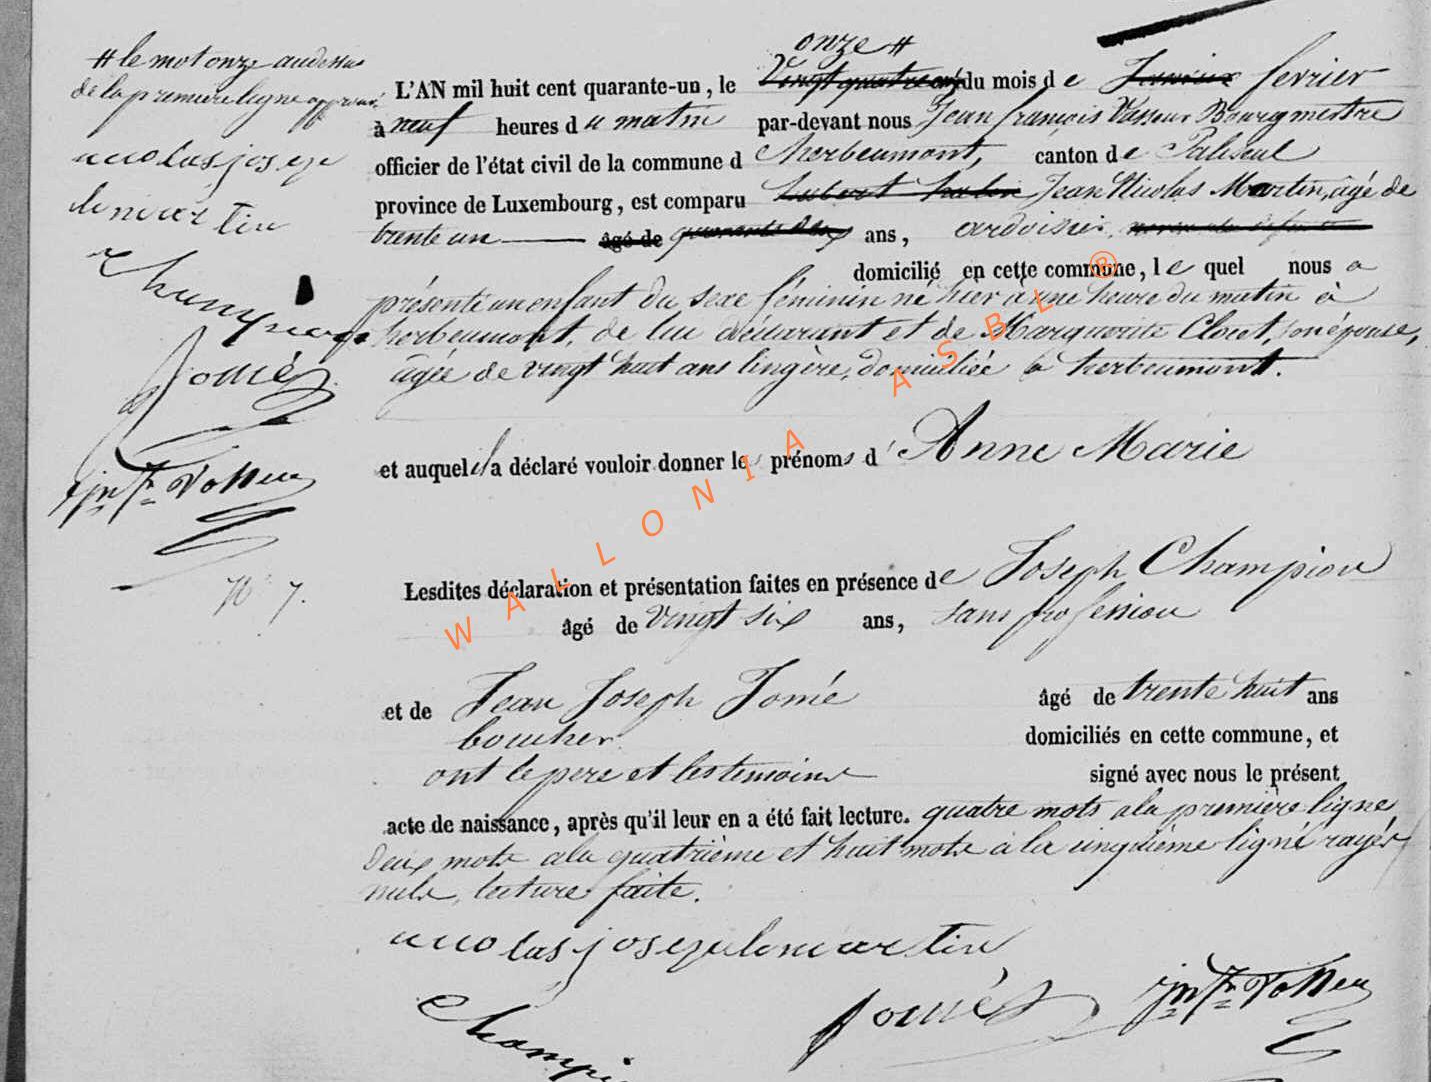 # le mot onze audessus
de la premiere ligne approuvé.
Champion
Jomé
N° 7.
onze #
L'AN mil huit cent quarante-un, le vingt quatre du mois de Janvier fevrier
à neuf heures du matin par-devant nous Jean françois Vasseur Bourgmestre
officier de l'état civil de la commune d herbeumont, canton de Paliseul
province de Luxembourg, est comparu hubert Jean Nicolas Martin, âgé de
trente un âgé de quarante deux ans, ardoisier,
domicilié en cette commune, le quel nous a
présenté un enfant du sexe féminin né hier à une heure du matin à
herbeumont, de lui déclarant et de Marguerite Cloet, son épouse,
âgée de vingt huit ans lingère, domiciliée à herbeumont.
et auquel il a déclaré vouloir donner les prénoms d' Anne Marie
Lesdites déclaration et présentation faites en présence de Joseph Champion
âgé de vingt six ans, sans profession
et de Jean Joseph Jomé âgé de trente huit ans
boucher. domiciliés en cette commune, et
ont le pere et les temoins signé avec nous le présent
acte de naissance, après qu'il leur en a été fait lecture. quatre mots a la première ligne
Deux mots a la quatrième et huit mots à la cinquième ligne rayés
nuls, lecture faite.
Jomé
Champion
WALLONIA ASBL ®